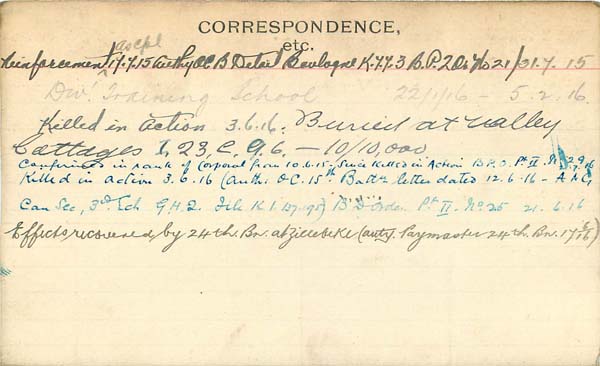 CORRESPONDENCE,
etc.
as Cpl
Reinforcement 17.7.15 auth OC B Detail Boulogne K.773 B.P.2 21/31.7.15
Div'l Training School 22/1/16 - 5.2.16.
Killed in action 3.6.16. Buried at Valley
Cottages I, 23, C, 9.6 — 10/10,000
Confirmed in rank of Corporal from 10.6.15, Since Killed in Action B.P.O. Pt II
Killed in action 3.6.16 (Auth: O.C. 15th Battn letter dated 12.6.16 - A A G
Can Sec, 3rd Ech G.H.Q. File K1 B D Order Pt II. No 25 21.6.16
Effects recovered by 24th. Bn. at Zillebeke (auty. Paymaster 24th. Bn. 17/6/16)